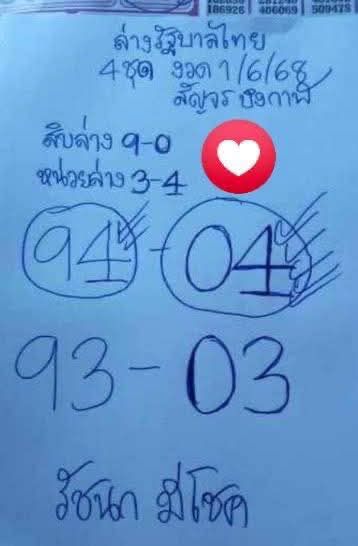 186926 406069 509475
ล่างรัฐบาลไทย
4ชุด งวด 1/6/68
สัญจร บึงกาฬ
สิบล่าง 9-0
หน่วยล่าง 3-4
94 - 04
93 - 03
รัชนก มีโชค